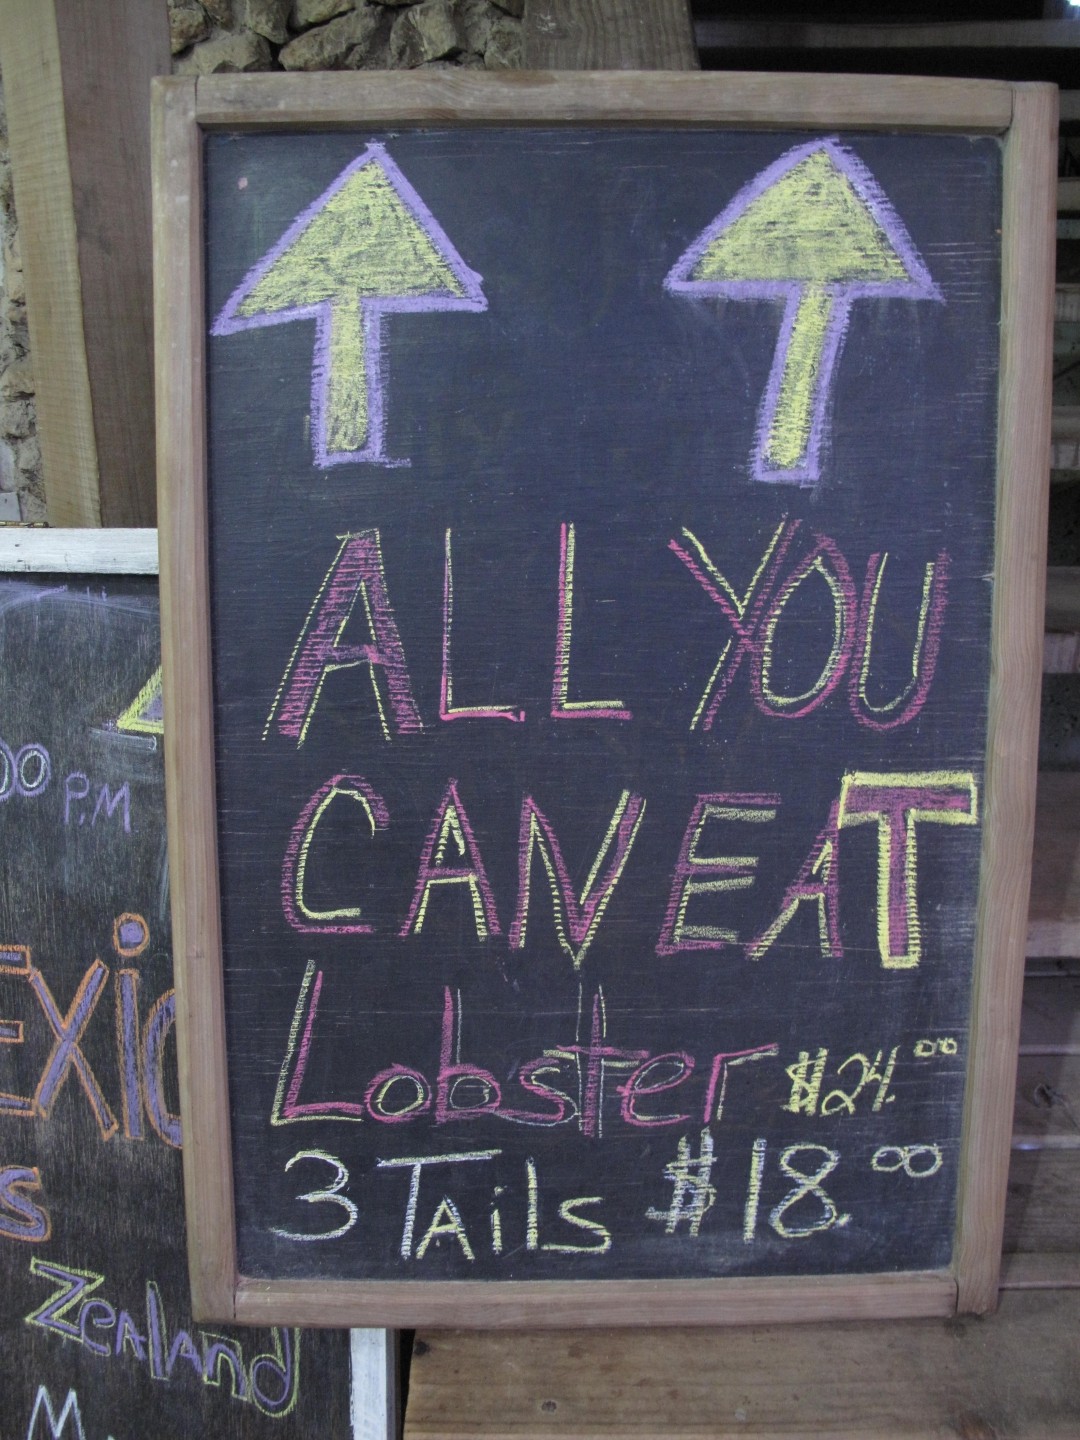 ALL YOU
CAN EAT
Lobster $24.00
3 TAils $18.00
00 P.M
EXiC
s
ZeAlAnd
M